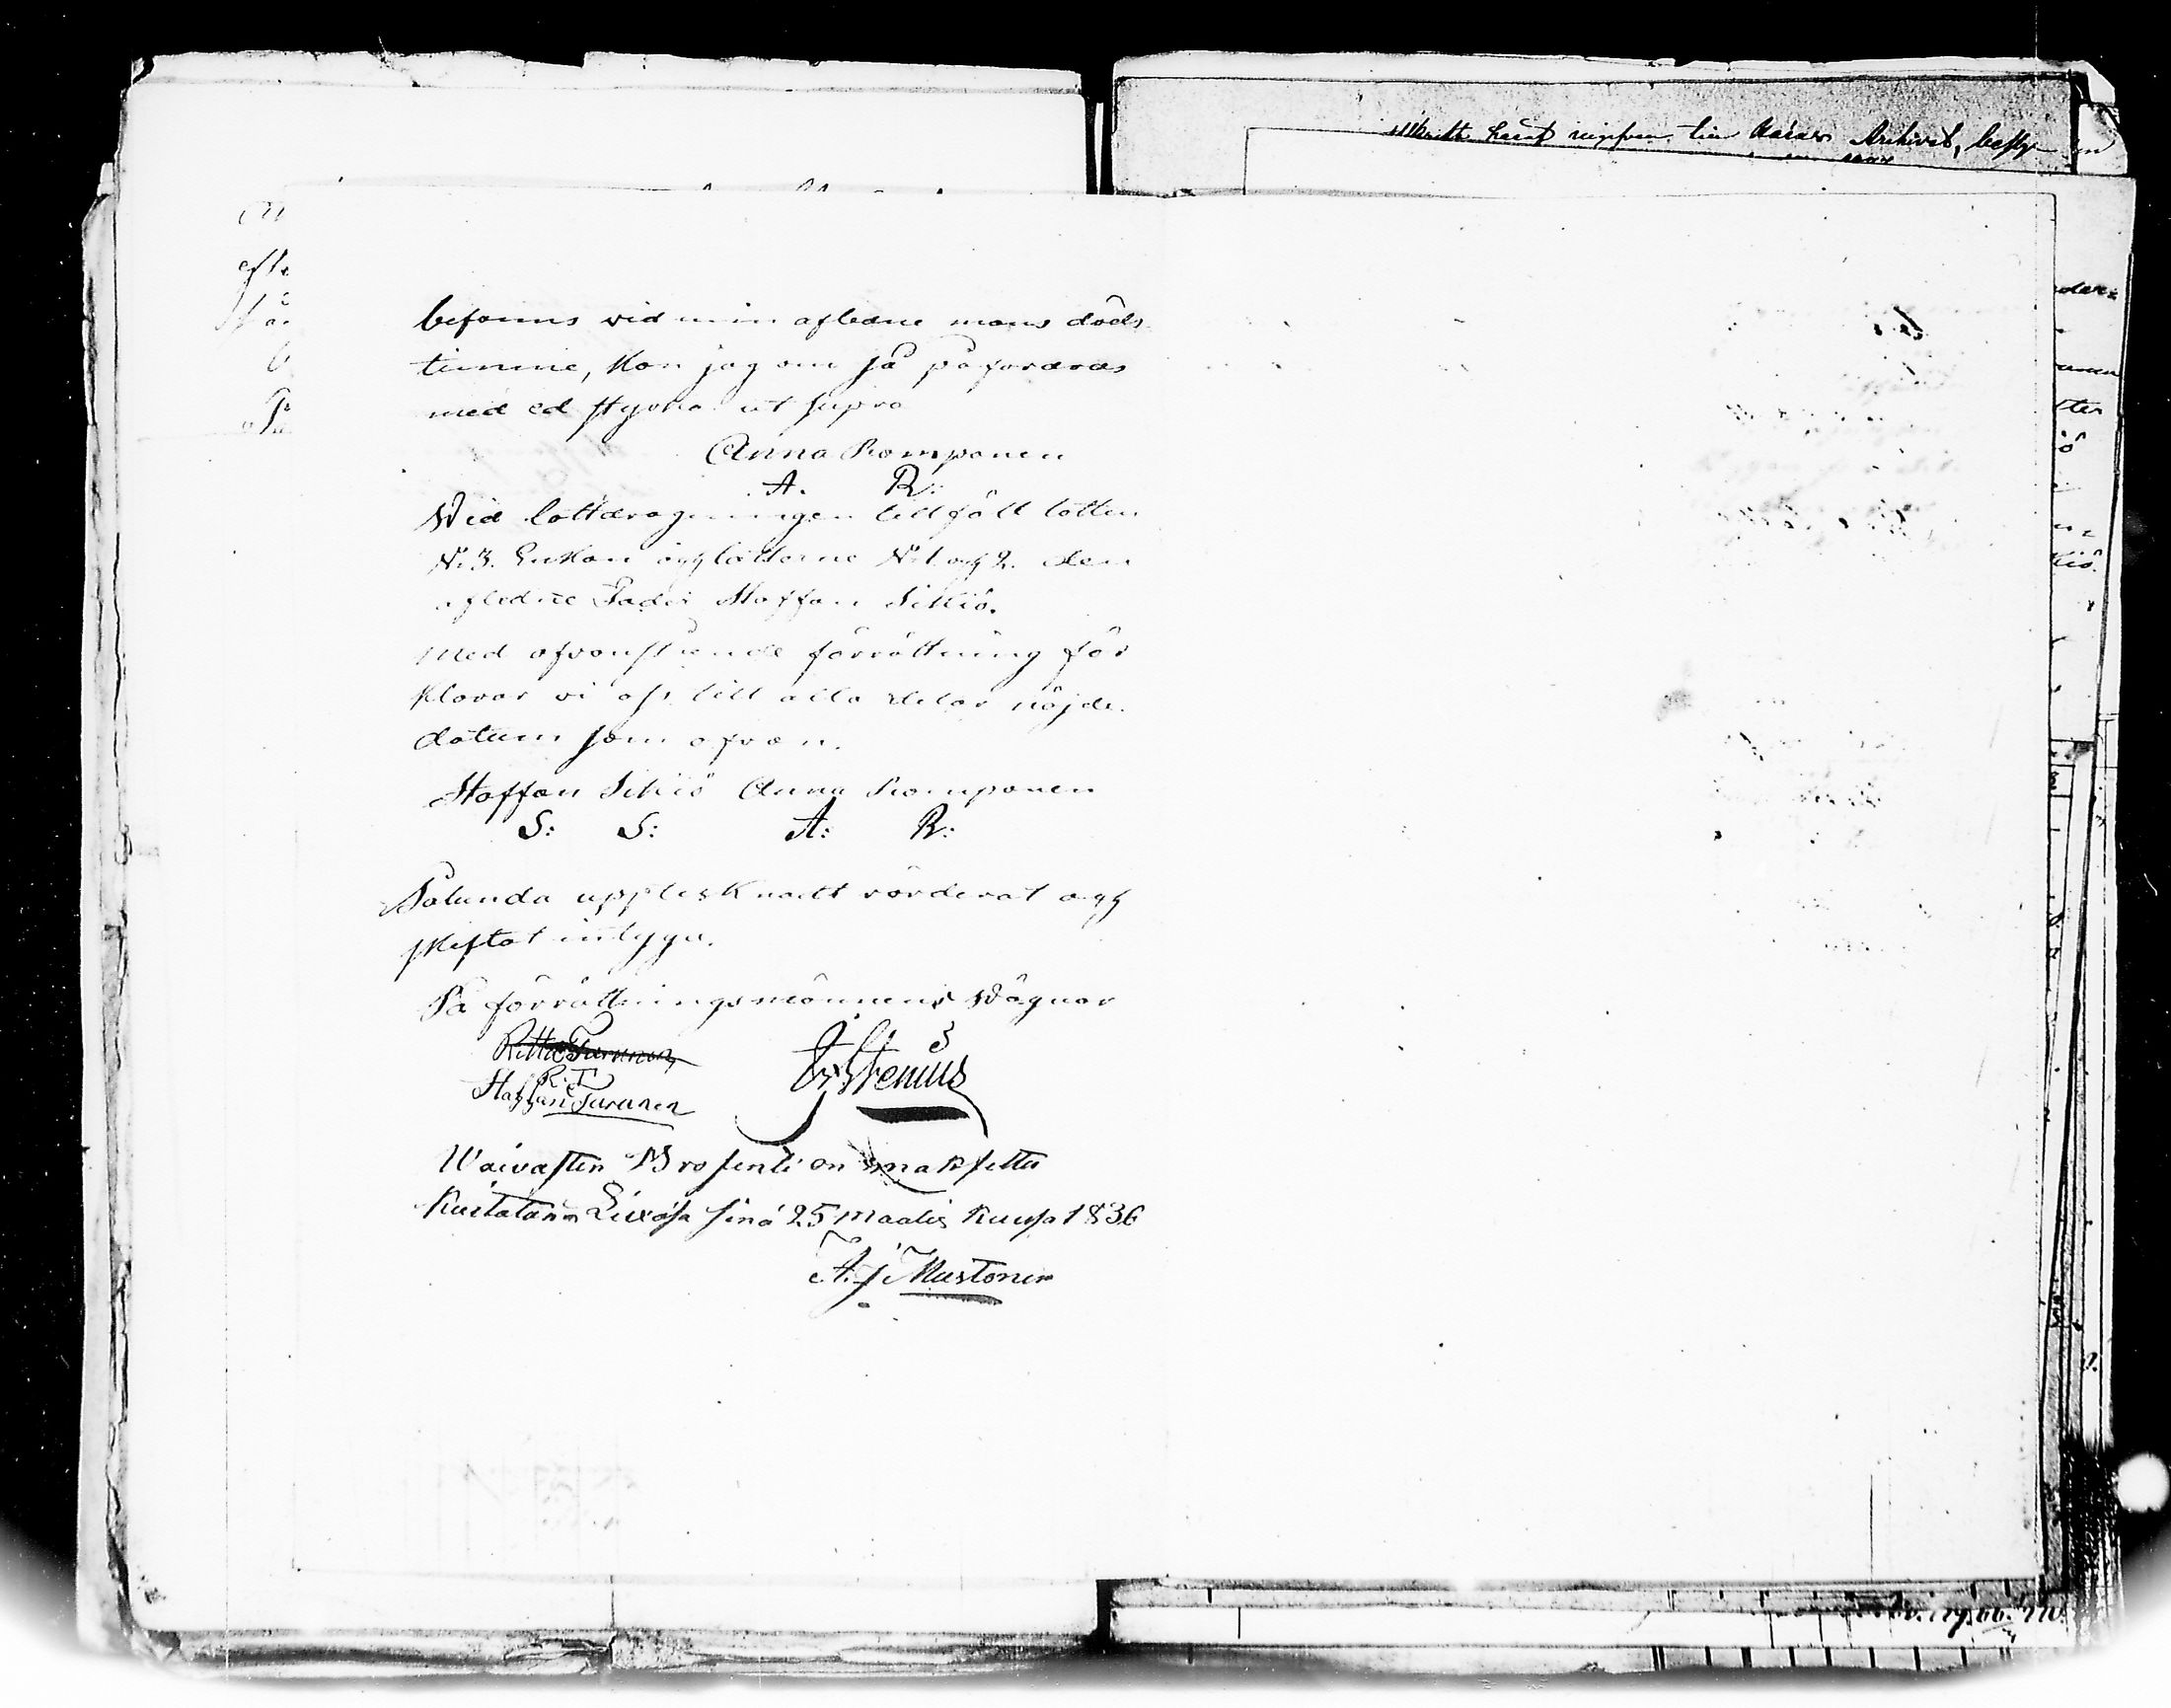 befanns vid min aflidne mans döds
timme, kan jag om så påfordras
med ed styrka ut supra
Anna Romponen
A. R:
Wid lottdragningen tillföll lotten
N:3. Enkan och lotterne N:1 och 2. den
aflidne Fader Staffan Sikiö.
Med ofvanstående förrättning för
klarar vi oss till alla delar nöjde.
datum som ofvan.
Staffan Sikiö Anna Romponen
S: S: A: R:
Sålunda upptecknadt värderat och
skiftat intyga.
På förrättningsmännens vägnar
Ritta Turunen
R. T
Staffan Turunen
Stenius
Waivasten Prosenti on maksettu
Kuitatan Lixåsa sinä 25 maalis kuusa 1836
A. J Mustonen
Archivet,